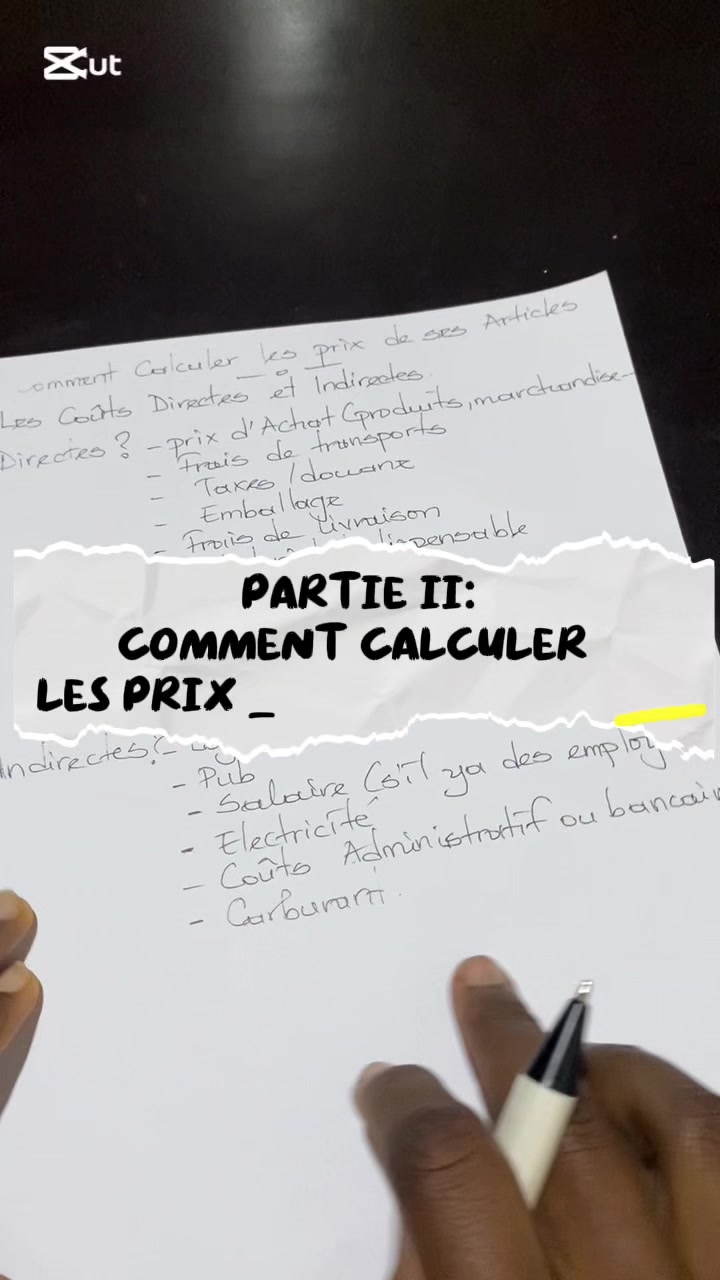 Cut
omment Calculer les prix de ses Articles
Les Coûts Directes et Indirectes.
Directes? - prix d'Achat (produits, marchandise-
- Frais de transports
- Taxes / douane
- Emballage
- Frais de livraison
PARTIE II:
COMMENT CALCULER
LES PRIX _
Indirectes? -
- Pub
- Salaire (s'il ya des employ
- Electricité
- Coûts Administratif ou bancair
- Carburant.